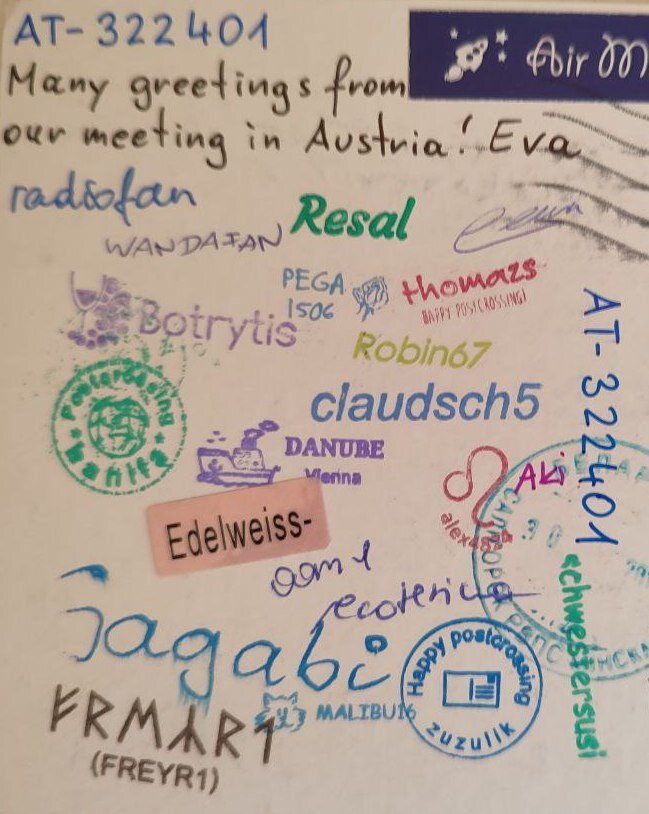 AT-322401
Air M
Many greetings from
our meeting in Austria! Eva
radiofan
WANDAFAN
Resal
PEGA
1506
thomazs
HAPPY POSTCROSSING!
Botrytis
Robin67
claudsch5
Postcrossing
DANUBE
Vienna
AT-322401
alex48
Edelweiss-
ecoterica
schwestersusi
Jagabi
Happy postcrossing
zuzulik
MALIBU16
ᚠᚱᛖᛣᚱ1
(FREYR1)